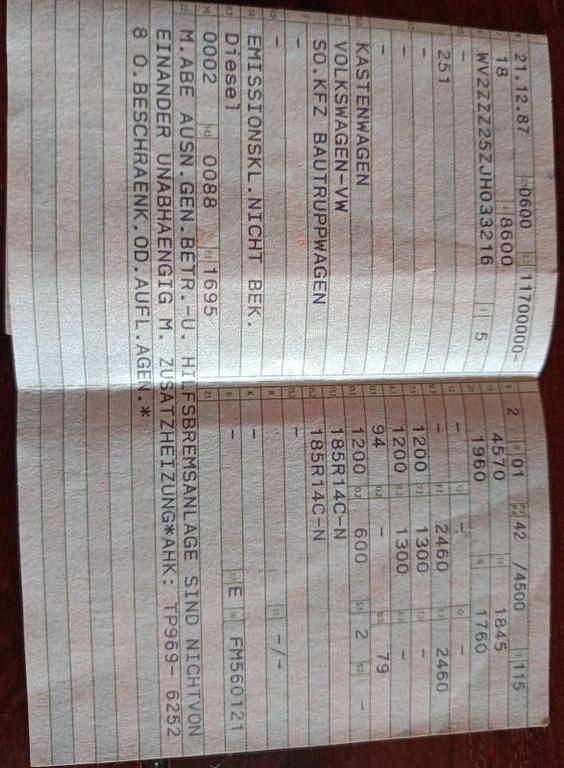 21.12.87 0600 11700000-
18 8600
WV2ZZZ25ZJH033216 5
-
251
- -
- -
KASTENWAGEN
VOLKSWAGEN-VW
SO.KFZ BAUTRUPPWAGEN
-
-
EMISSIONSKL.NICHT BEK.
Diesel
0002 0088 1695
2 01 42 /4500 115
4570 1845
1960 1760
- - -
- 2460 2460
1200 1300 -
1200 1300 -
94 - 79
1200 600 2 -
185R14C-N
185R14C-N
-
-/-
-
- E FM560121
M.ABE AUSN.GEN.BETR.-U. HILFSBREMSANLAGE SIND NICHTVON
EINANDER UNABHAENGIG M. ZUSATZHEIZUNG*AHK: TP969- 6252
8 O.BESCHRAENK.OD.AUFL.AGEN.*